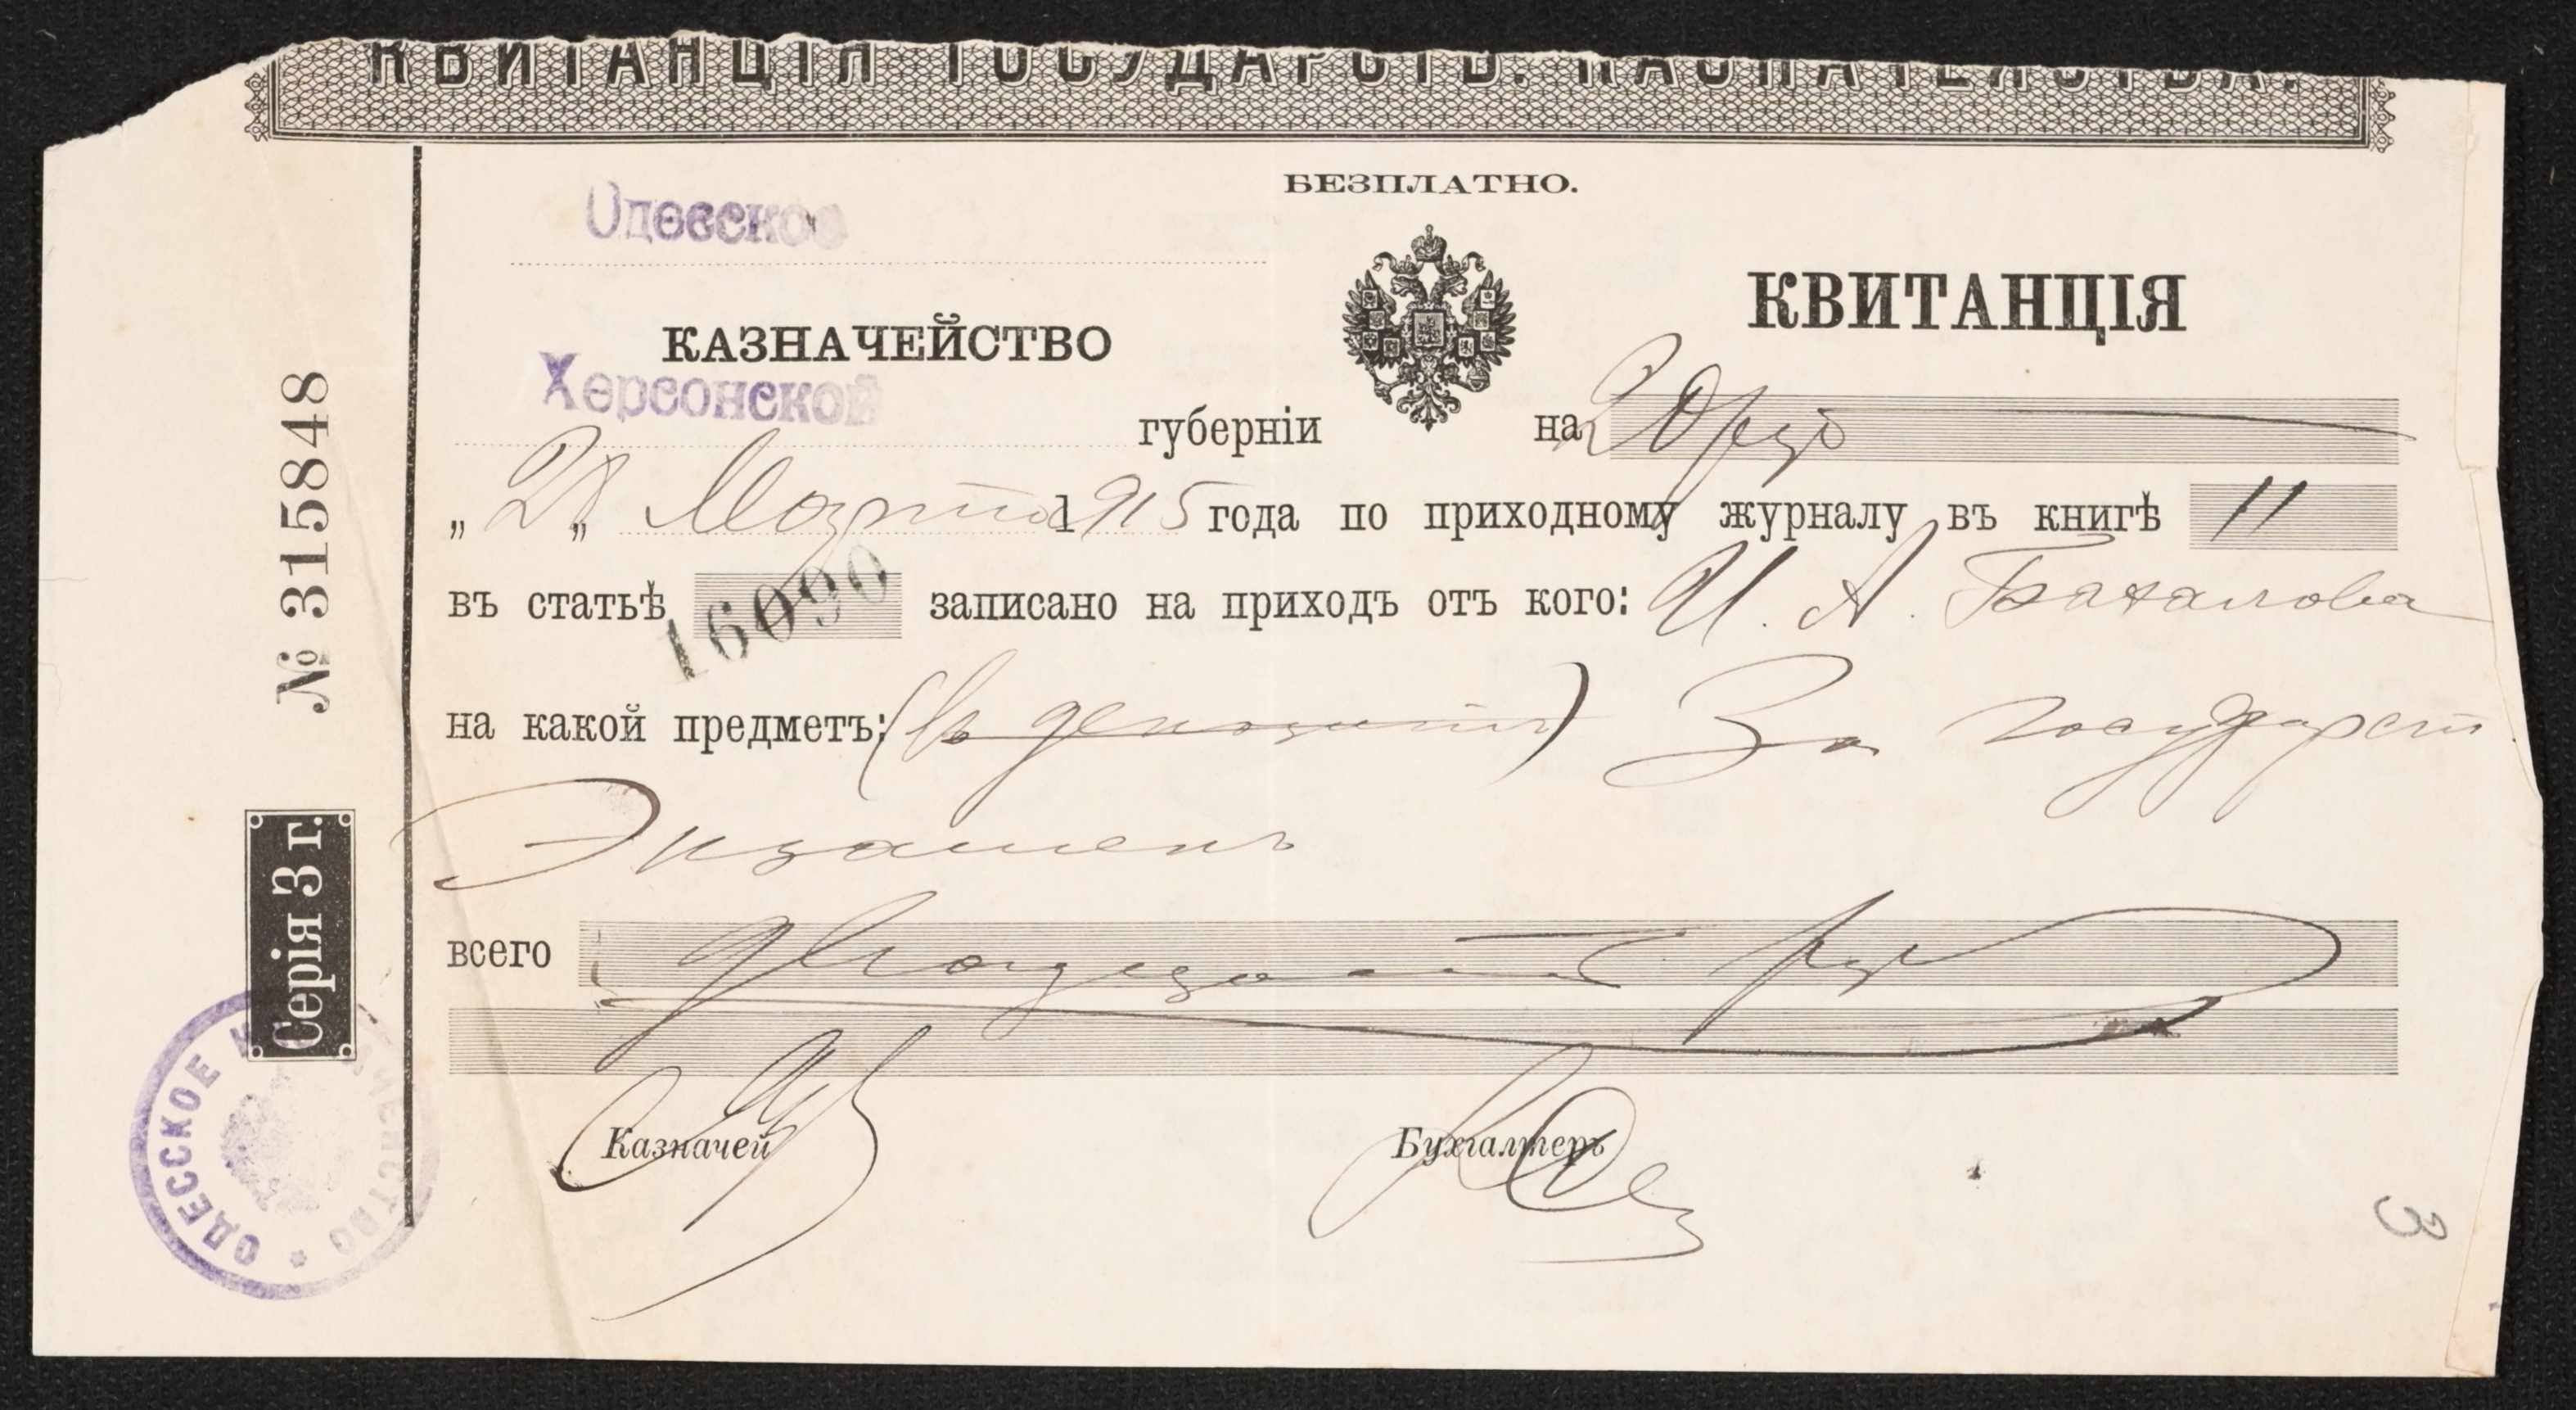 КВИТАНЦІЯ ГОСУДАРСТВ. КАЗНАЧЕЙСТВА.
БЕЗПЛАТНО.
Одесское
КАЗНАЧЕЙСТВО
Херсонской
губерніи
КВИТАНЦІЯ
на 20 руб
„ „ Марта 1915 года по приходному журналу въ книгѣ 11
въ статьѣ 16090 записано на приходъ отъ кого: И. А.
на какой предметъ: (въ депозитъ) За государст
Экзаменъ
всего двадцать руб
Казначей
Бухгалтеръ
№ 315848
Серія 3 г.
ОДЕССКОЕ КАЗНАЧЕЙСТВО
3